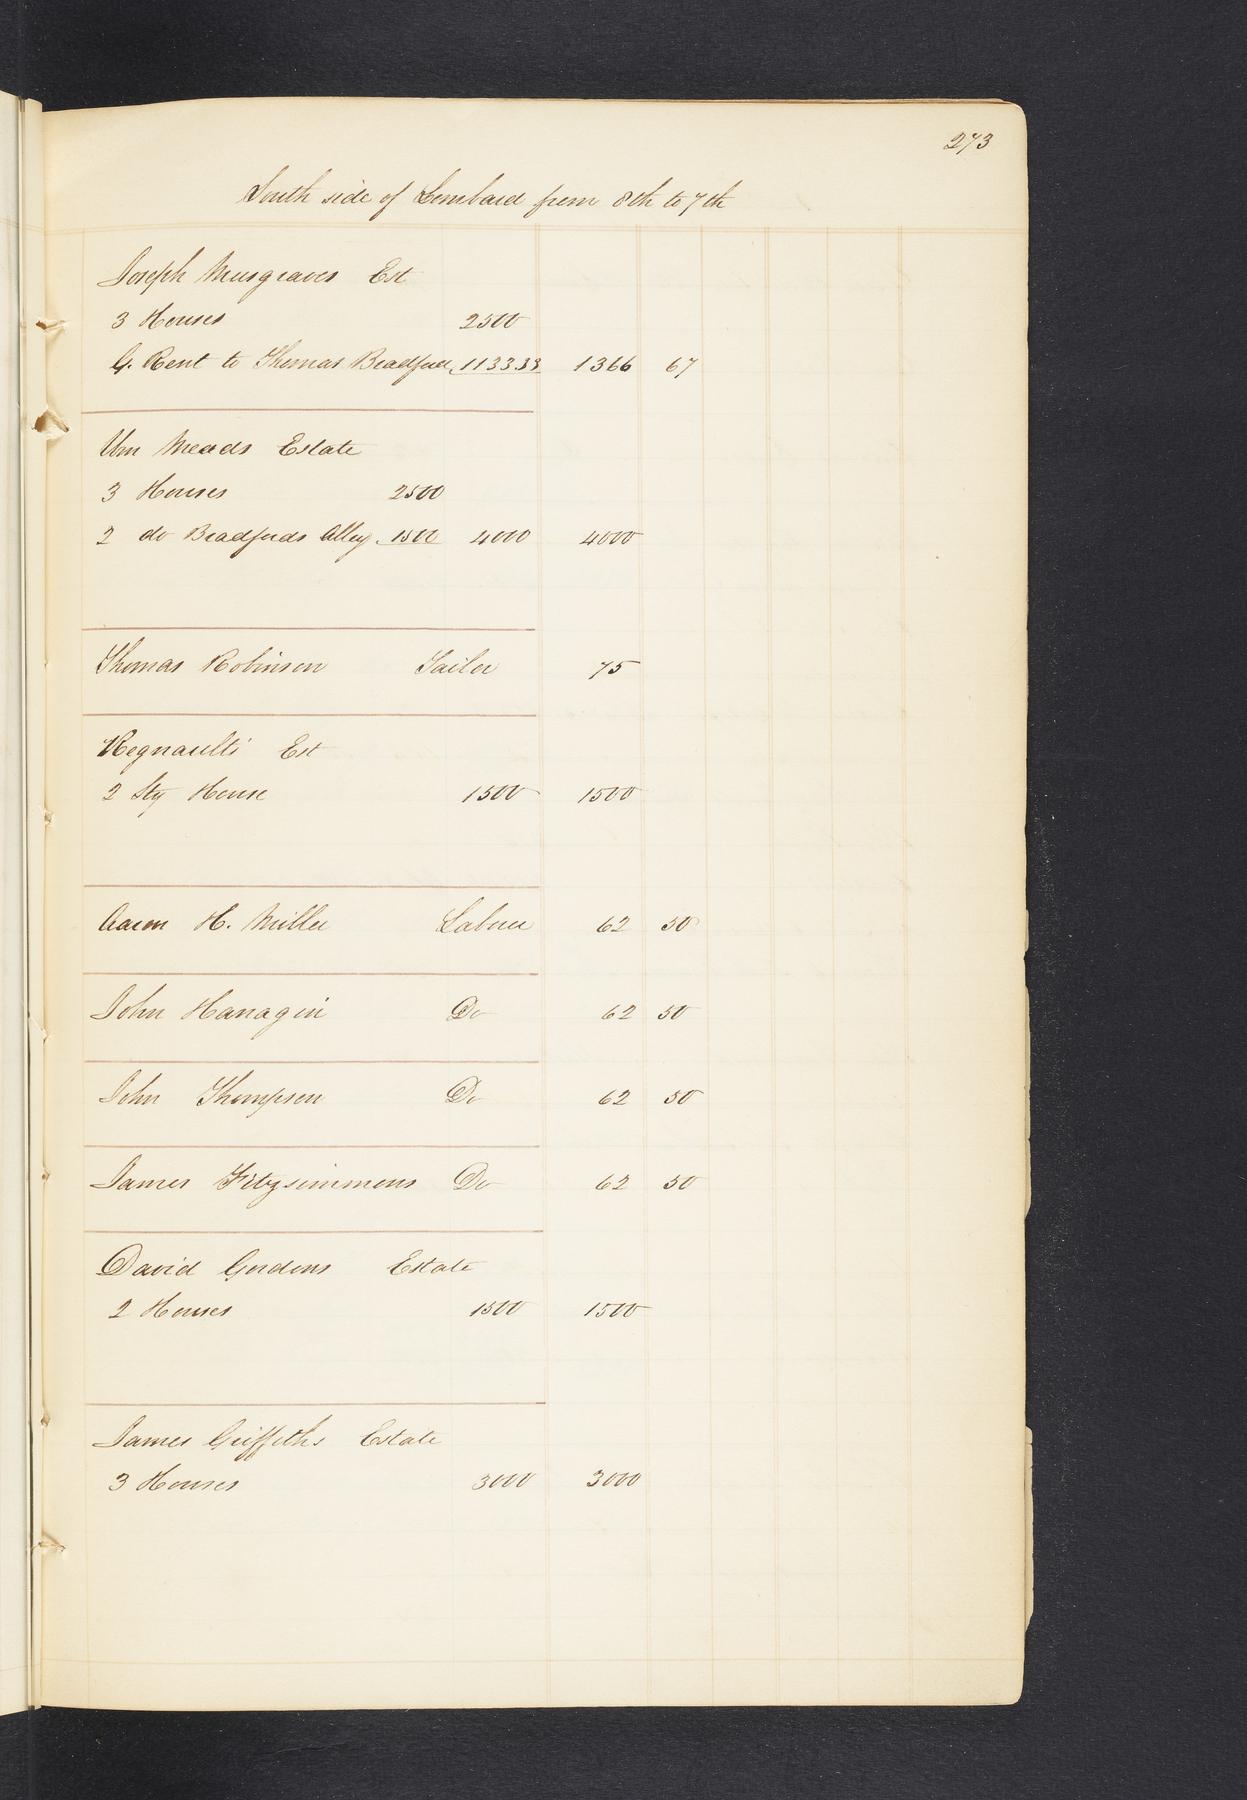 273
South side of Lombard from 8th to 7th
Joseph Musgraves Est
3 Houses 2500
G. Rent to Thomas Bradford 1133.33 1366 67
Wm Meads Estate
3 Houses 2500
2 do Bradfords Alley 1500 4000 4000
Thomas Robinson Tailor 75
Regnaults Est
2 Sty House 1500 1500
Aaron H. Miller Laborer 62 50
John Hanagin Do 62 50
John Thompson Do 62 50
James Fitzsimmons Do 62 50
David Gordons Estate
2 Houses 1500 1500
James Griffiths Estate
3 Houses 3000 3000